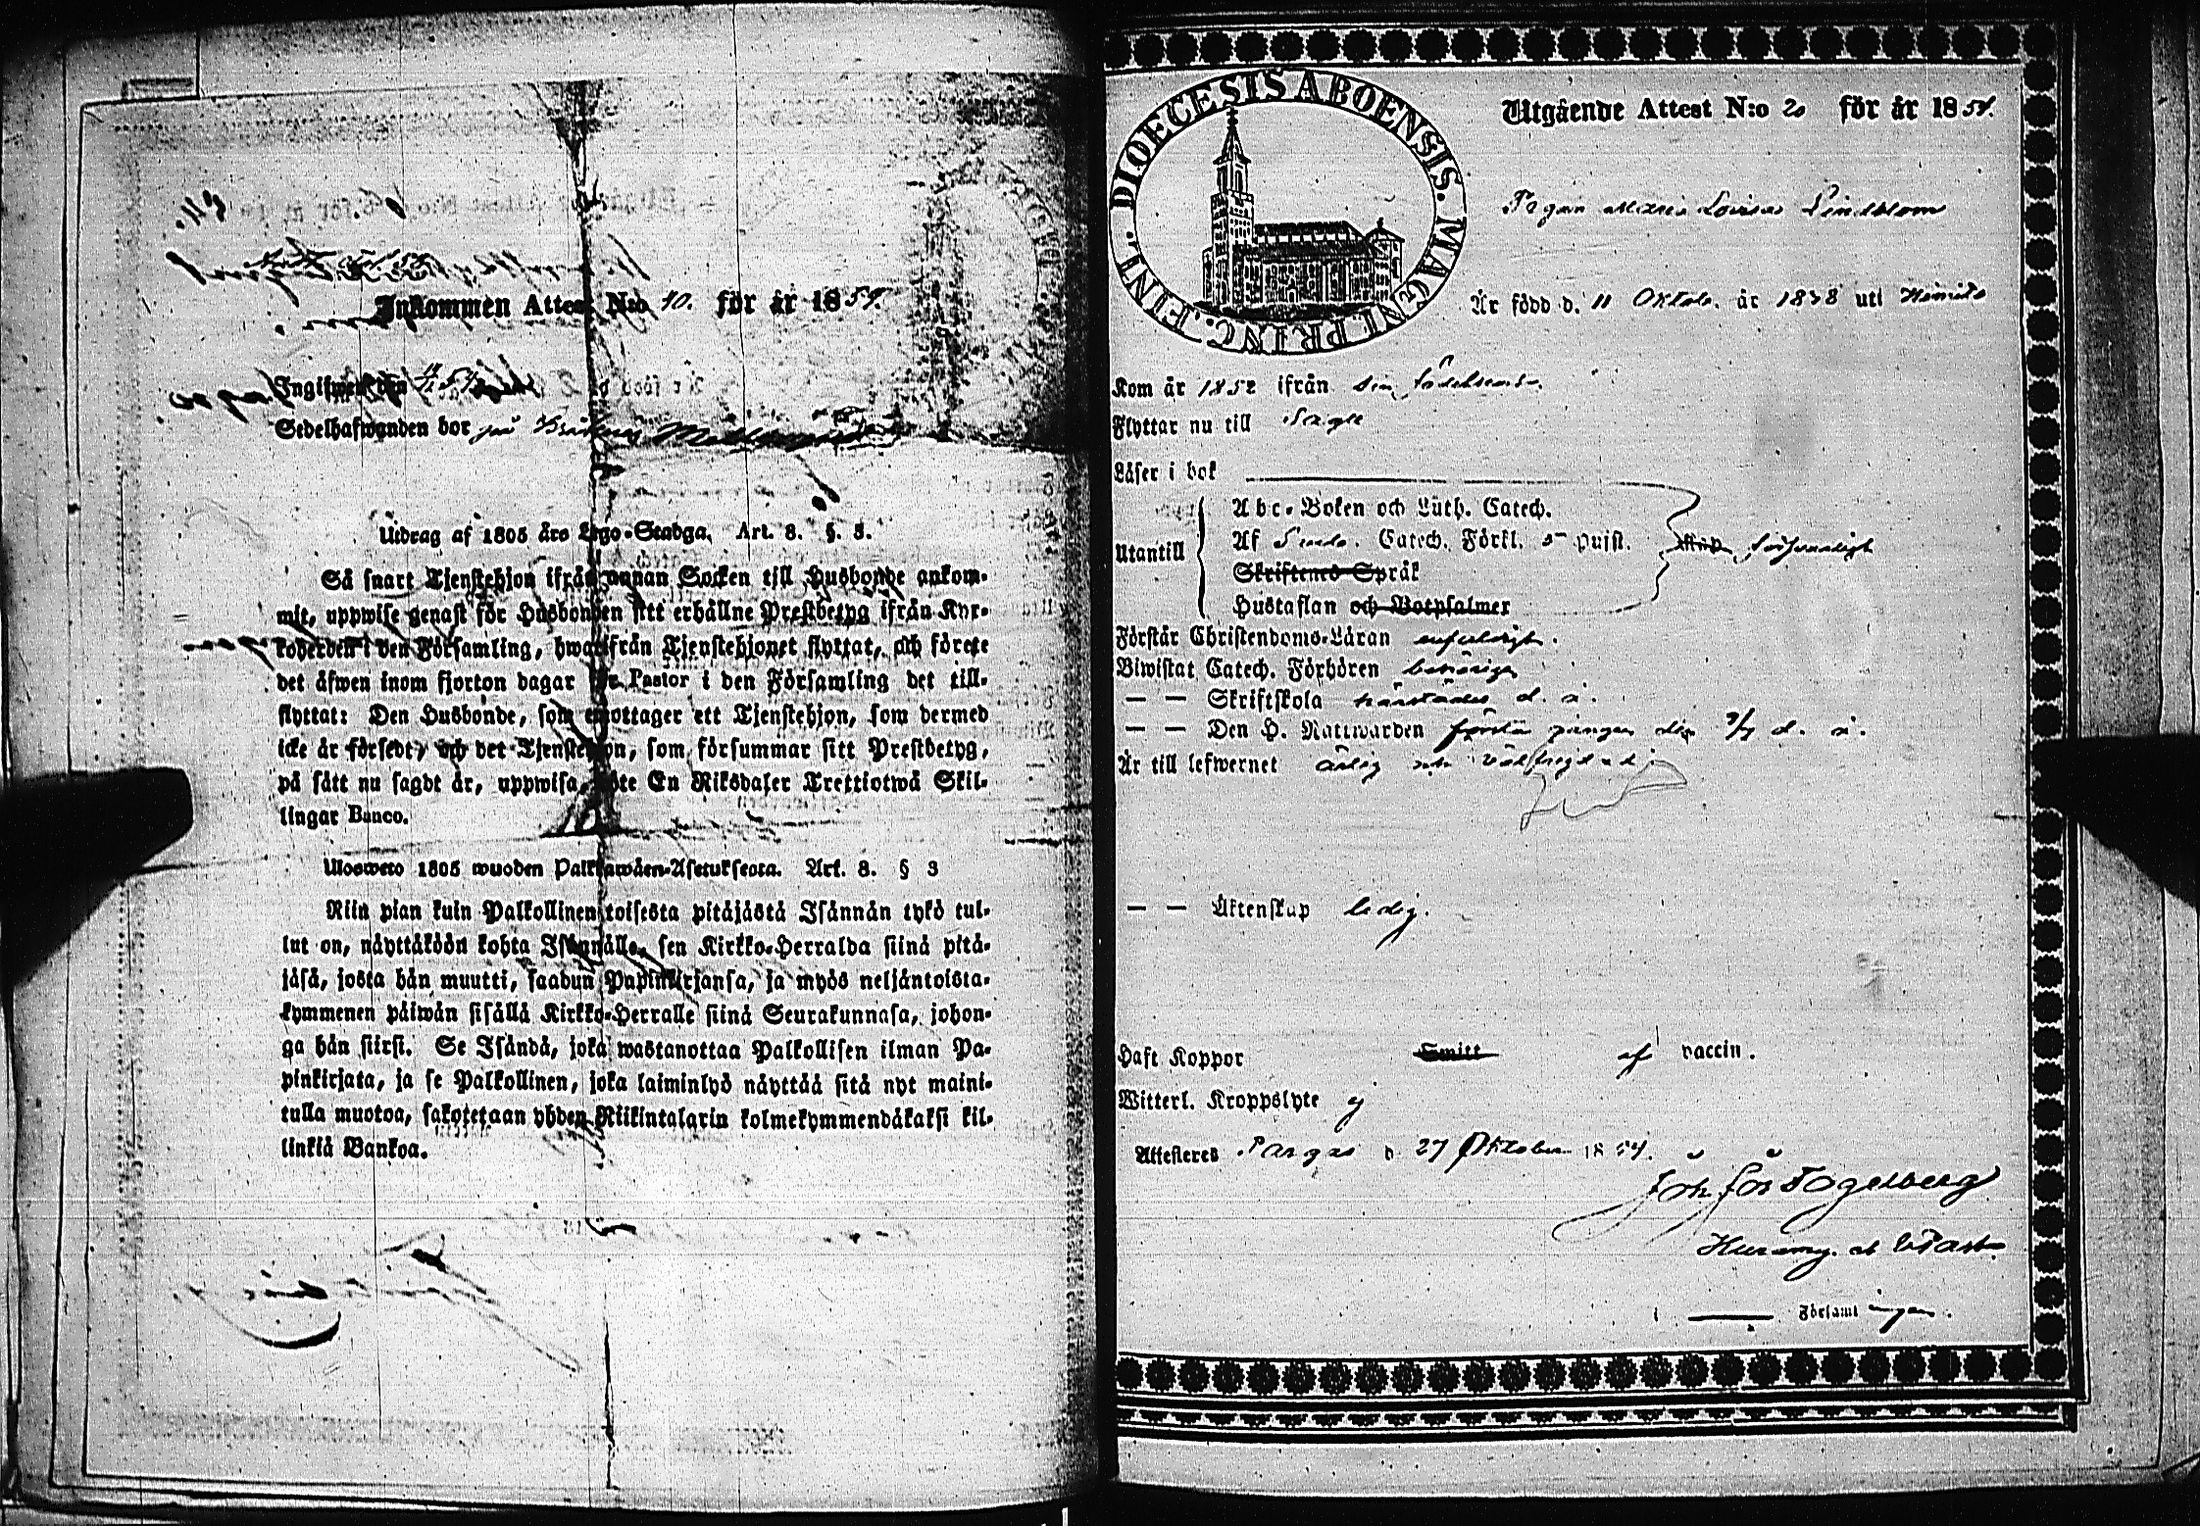 Inkommen Attest N:o 40. för år 1854.
Ingifwen den
Sedelhafwanden bor på
Utdrag af 1805 års Lego-Stadga. Art. 8. §. 3.
Så snart Tjenstehjon ifrån annan Socken till Husbonde ankom-
mit, uppwise genast för Husbonden sitt erhållne Prestbetyg ifrån Kyr-
koherden i den Församling, hwarifrån Tjenstehjonet flyttat, och förete
det äfwen inom fjorton dagar för Pastor i den Församling det till-
flyttat: Den Husbonde, som emottager ett Tjenstehjon, som dermed
icke är försedt, och det Tjenstehjon, som försummar sitt Prestbetyg,
på sätt nu sagdt är, uppwisa, böte En Riksdaler Trettiotwå Skil-
lingar Banco.
Uloswето 1805 wuoden Palkkawäen-Asetuksesta. Art. 8. § 3
Niin pian kuin Palkollinen toisesta pitäjästä Isännän tykö tul-
lut on, näyttäköön kohta Isännälle, sen Kirkko-Herralda siinä pitä-
jäsä, josta hän muutti, saadun Papinkirjansa, ja myös neljäntoista-
kymmenen päiwän sisällä Kirkko-Herralle siinä Seurakunnasa, johon-
ga hän siirsi. Se Isändä, joka wastanottaa Palkollisen ilman Pa-
pinkirjata, ja se Palkollinen, joka laiminlyö näyttää sitä nyt maini-
tulla muotoa, sakotetaan yhden Riikintalarin kolmekymmendäkaksi kil-
linkiä Bankoa.
DIOECESIS ABOENSIS. MAGNI PRINC. FINL.
Utgående Attest N:o 20 för år 1854.
Pigan Maria Lovisa Lindblom
Är född d. 11 Oktob. år 1838 uti Kimito
Kom år 1852 ifrån sin födelseort.
Flyttar nu till Sagu
Läser i bok
Abc-Boken och Luth. Catech.
Utantill Af Catech. Förkl. pujst. försvarligt
Skriftenes Språk
Hustaflan och Botpsalmer
Förstår Christendoms-Läran enfaldigt.
Biwistat Catech. Förhören behörigen
— — Skriftskola härstädes d. å.
— — Den H. Nattwarden första gången den d. å.
Är till lefwernet ärlig och välfrejdad.
— — Äktenskap ledig.
Haft Koppor Smitt af vaccin.
Witterl. Kroppslyte ej
Attesteras Pargas d. 27 Oktober 1854.
Fogelberg
i Församlingen.